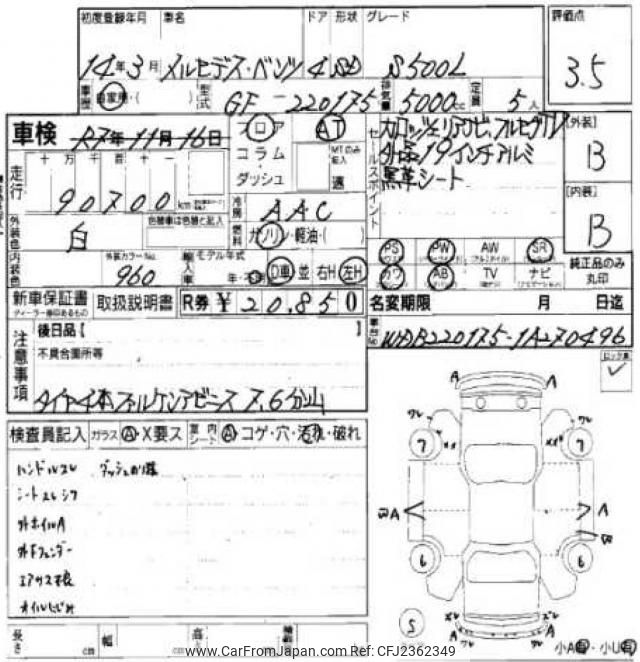 初度登録年月 車名 ドア 形状 グレード 評価点
14年3月 メルセデス・ベンツ 4 SD S500L 3.5
車歴 自家用・( ) 型式 GF-220175 排気量 5000cc 定員 5人
車検 R7年11月16日 フロア AT
コラム MTのみ記入
ダッシュ 速
セールスポイント カロッジェリアナビ、フルセグTV
外品19インチアルミ
黒革シート
[外装] B
[内装] B
走行 十 万 千 百 十 一
90700 km
冷房 AAC
外装色 白 色替車は色替と記入 燃料 ガソリン・軽油・( )
内装色 外装カラーNo. 960 輸入車 モデル年式 年・不明 D車 並 右H 左H
PS PW AW SR 純正品のみ丸印
カワ AB TV ナビ
新車保証書 取扱説明書 R券 ¥20,850
名変期限 月 日迄
車台No WDB220175-1A270496
注意事項 後日品【
不具合箇所等
タイヤ4本ファルケンアゼニス 7.6分山
ロック名
検査員記入 ガラス A・X要ス 室内シート A・コゲ・穴・汚れ・破れ
ハンドルスレ
シートスレシワ
外ホイルA
外Fフェンダー
エアサス
オイルにじみ
A A
ワレ ワレ
7 7
A A
6 6
S
A A
長さ cm 幅 cm 高さ
小A・小U
www.CarFromJapan.com Ref: CFJ2362349